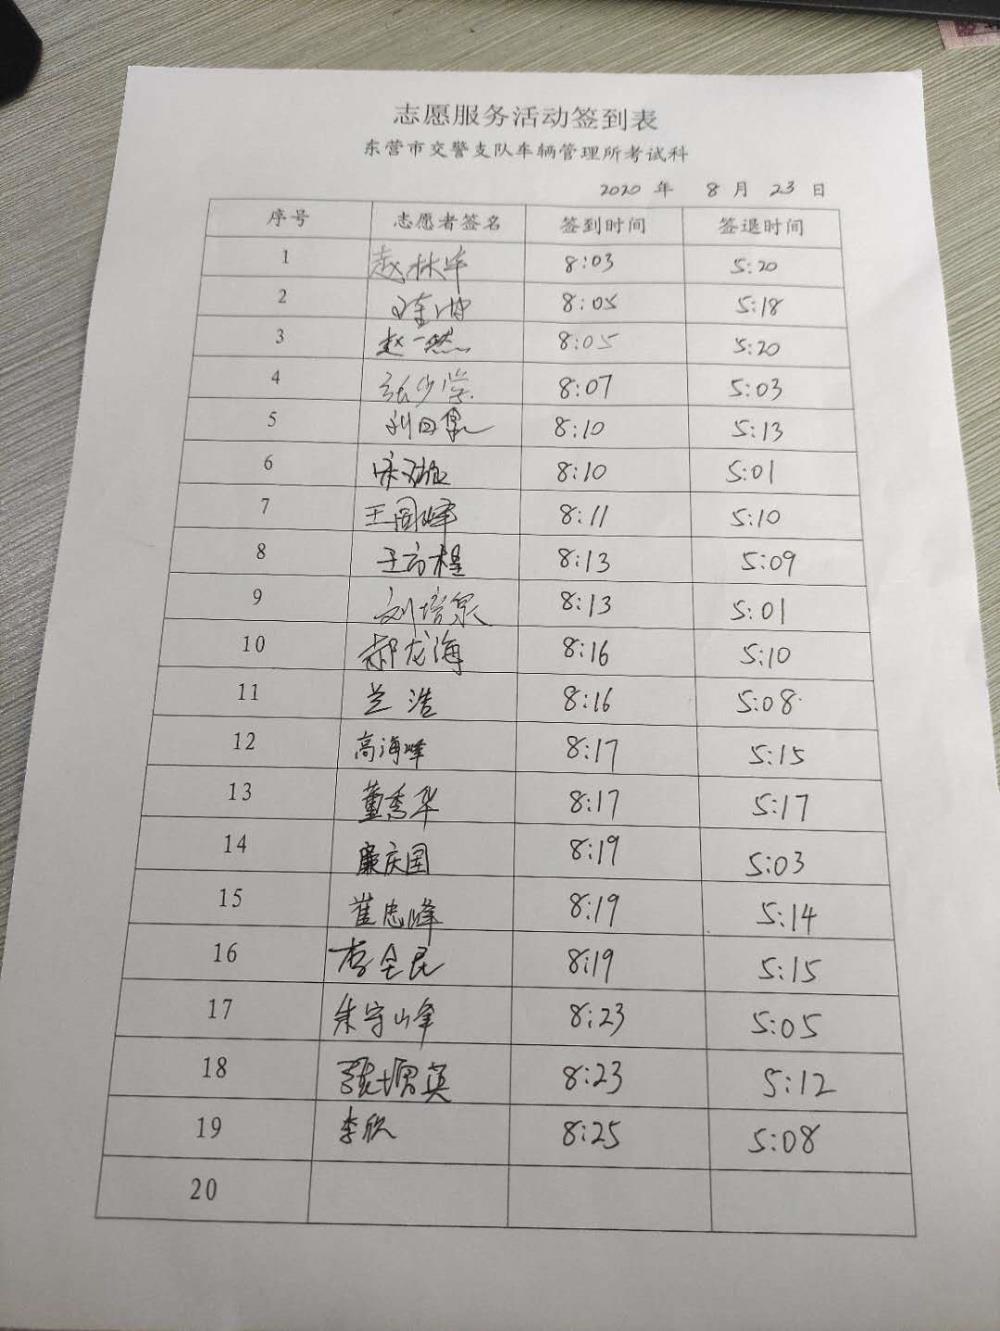 志愿服务活动签到表
东营市交警支队车辆管理所考试科
2020 年 8 月 23 日
序号 志愿者签名 签到时间 签退时间
1 赵林华 8:03 5:20
2 8:05 5:18
3 赵一然 8:05 5:20
4 张少堂 8:07 5:03
5 8:10 5:13
6 8:10 5:01
7 王国峰 8:11 5:10
8 王方程 8:13 5:09
9 刘培泉 8:13 5:01
10 郝龙海 8:16 5:10
11 兰浩 8:16 5:08
12 高海峰 8:17 5:15
13 董秀华 8:17 5:17
14 廉庆国 8:19 5:03
15 崔忠峰 8:19 5:14
16 李全民 8:19 5:15
17 朱守峰 8:23 5:05
18 张增英 8:23 5:12
19 李欣 8:25 5:08
20